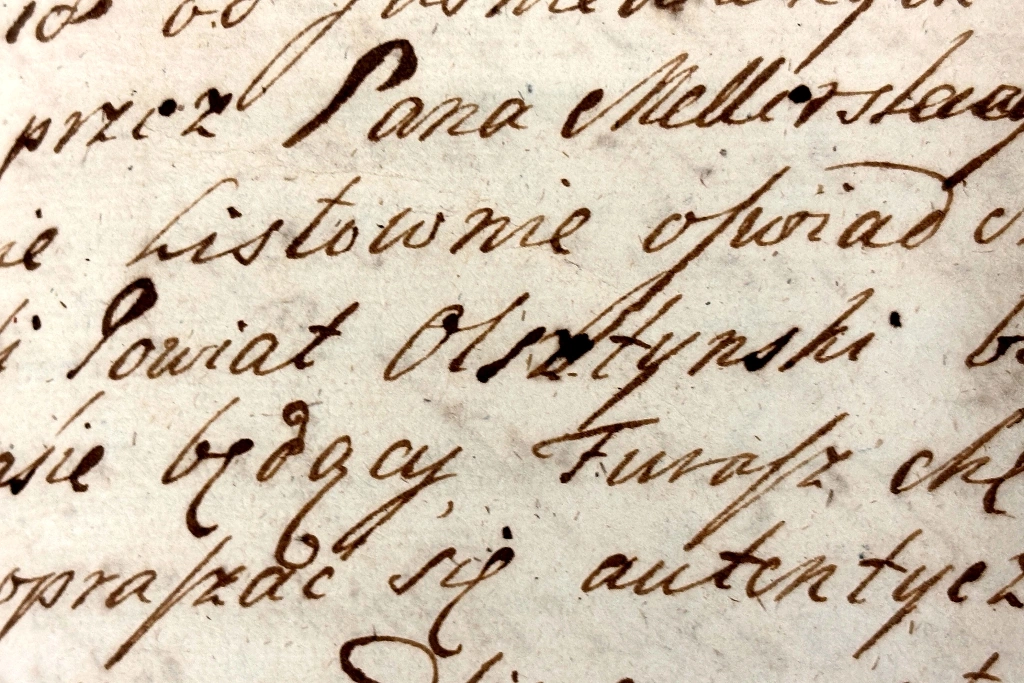 przez Pana Mellerska
ie Listownie oſwiadc
i Powiat Olsztynski b
asie będący, Furaſz chę
opraſzać się autentycz